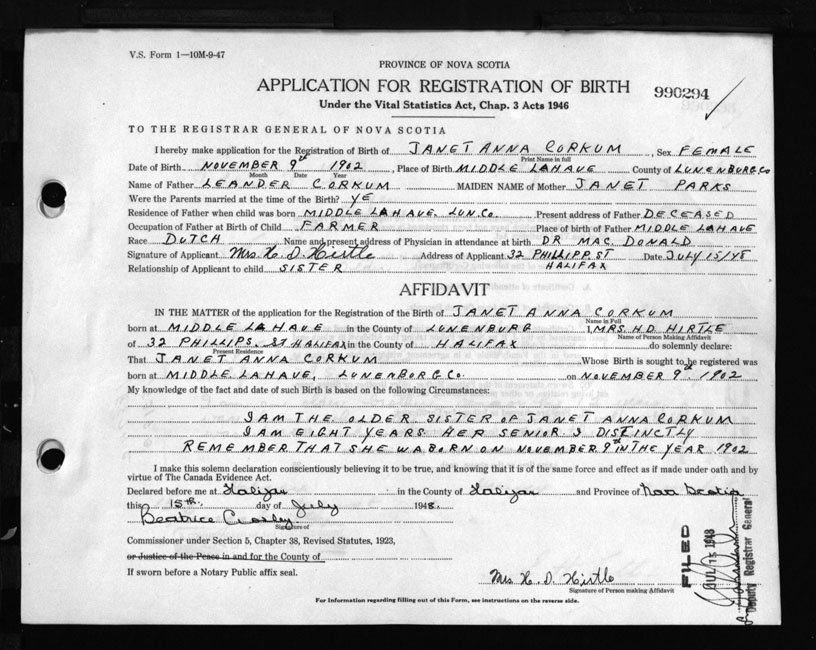 V.S. Form 1—10M-9-47
PROVINCE OF NOVA SCOTIA
APPLICATION FOR REGISTRATION OF BIRTH
990294
Under the Vital Statistics Act, Chap. 3 Acts 1946
TO THE REGISTRAR GENERAL OF NOVA SCOTIA
I hereby make application for the Registration of Birth of JANET ANNA CORKUM, Sex FEMALE
Print Name in full
Date of Birth NOVEMBER 9th 1902, Place of Birth MIDDLE LAHAVE County of LUNENBURG Co
Month Date Year
Name of Father LEANDER CORKUM MAIDEN NAME of Mother JANET PARKS
Were the Parents married at the time of the Birth? YE
Residence of Father when child was born MIDDLE LAHAVE, LUN. Co. Present address of Father DECEASED
Occupation of Father at Birth of Child FARMER Place of birth of Father MIDDLE LAHAVE
Race DUTCH Name and present address of Physician in attendance at birth DR MAC. DONALD
Signature of Applicant Mrs. H. D. Hirtle Address of Applicant 32 PHILLIPP. ST Date JULY 15/48
Relationship of Applicant to child SISTER HALIFAX
AFFIDAVIT
IN THE MATTER of the application for the Registration of the Birth of JANET ANNA CORKUM
Name in Full
born at MIDDLE LAHAVE in the County of LUNENBURG I, MRS. H.D. HIRTLE
Name of Person Making Affidavit
of 32 PHILLIPS. ST HALIFAX in the County of HALIFAX do solemnly declare:
Present Residence
That JANET ANNA CORKUM Whose Birth is sought to be registered was
born at MIDDLE LAHAVE, LUNENBORG Co. on NOVEMBER 9th 1902
My knowledge of the fact and date of such Birth is based on the following Circumstances:
I AM THE OLDER SISTER OF JANET ANNA CORKUM
I AM EIGHT YEARS HER SENIOR. I DISTINCTLY
REMEMBER THAT SHE WA BORN ON NOVEMBER 9th IN THE YEAR 1902
I make this solemn declaration conscientiously believing it to be true, and knowing that it is of the same force and effect as if made under oath and by
virtue of The Canada Evidence Act.
Declared before me at Halifax in the County of Halifax and Province of Nova Scotia
this 15th. day of July 1948.
Beatrice Crosby.
Signature of
Commissioner under Section 5, Chapter 38, Revised Statutes, 1923,
or Justice of the Peace in and for the County of
If sworn before a Notary Public affix seal.
Mrs H. D. Hirtle
Signature of Person making Affidavit
For Information regarding filling out of this Form, see instructions on the reverse side.
FILED
JUL 15 1948
Deputy Registrar General